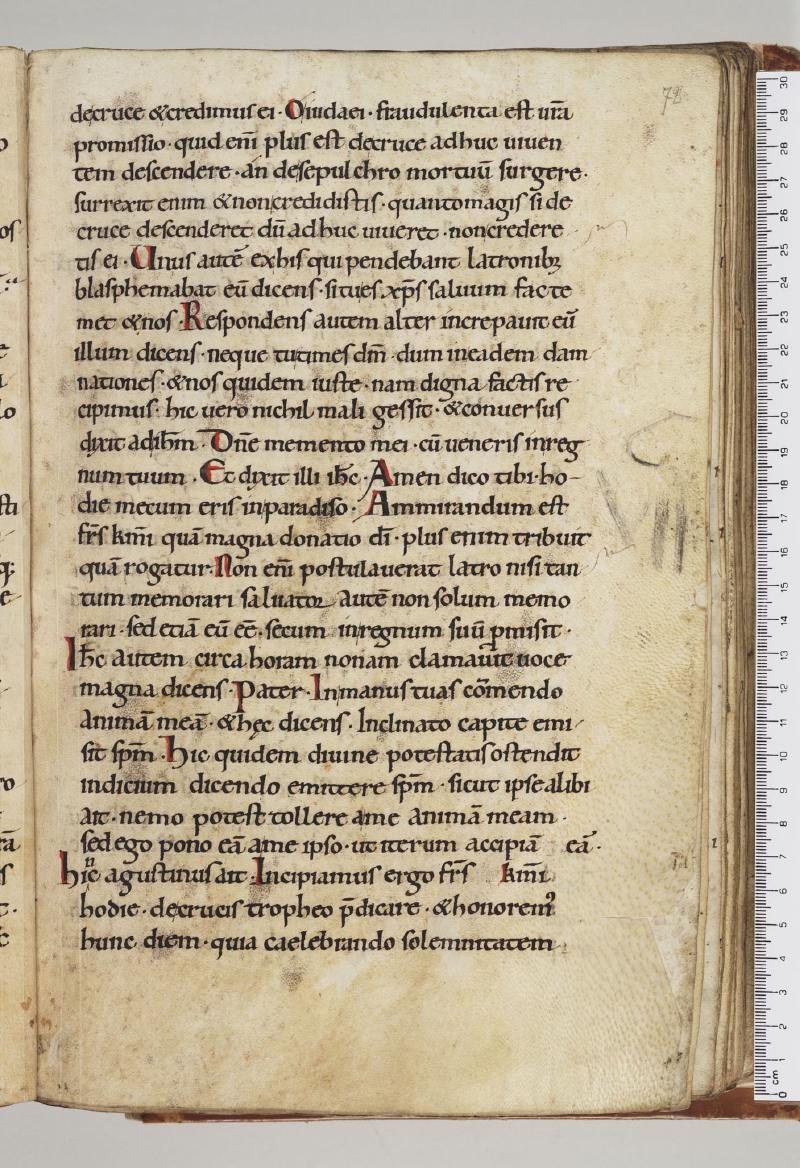 72
decruce &credimus ei · O iudaei · fraudulenta est ur̄a
promissio · quid eni̅ plus est decruce adhuc uiuen
tem descendere · an desepulchro mortuū surgere ·
surrexit enim & non credidistis · quantomagis si de
cruce descenderet dū adhuc uiueret · noncredere
tis ei · Unus autē exhis qui pendebant latronibꝫ
blasphemabat eū dicens · si tu es xp̄s saluum fac te
met & nos · Respondens autem alter increpauit eū
illum dicens · neque tu times dm̄ · dum ineadem dam
nationes · & nos quidem iuste · nam digna factis re
cipimus · hic uero nichil mali gessit · & conuersus
dixit ad ih̄m · Dn̄e memento mei · cū ueneris inreg
num tuum · Et dixit illi ih̄c · Amen dico tibi · ho-
die mecum eris inparadiso · Ammirandum est
fr̄s km̄i quā magna donatio dī · plus enim tribuit
quā rogatur · Non eni̅ postulauerat latro nisi tan
tum memorari saluator autē non solum memo
rari · sed etiā eū eē · secum inregnum suū pmisit ·
Ih̄c autem circa horam nonam clamauit uoce
magna dicens · Pater · Inmanus tuas cōmendo
animā meā · & hęc dicens · Inclinato capite emi
sit sp̄m · Hic quidem diuine potestatis ostendit
indicium dicendo emittere sp̄m · sicut ipse alibi
ait · nemo potest tollere ame animā meam ·
sed ego pono eā ame ipso · ut iterum accipiā eā ·
hic agustinus ait · Incipiamus ergo fr̄s km̄i
hodie · decrucis tropheo p̄dicare · & honorem᾽
hunc diem · quia caelebrando solemnitatem